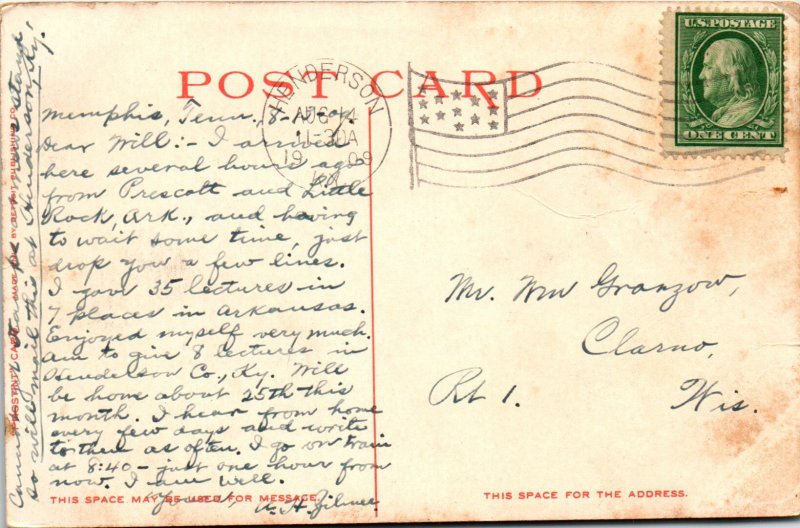 POST CARD
U.S. POSTAGE
ONE CENT
HENDERSON
AUG 14
11-30A
1909
KY.
Memphis, Tenn., 8-13-09.
Dear Will:- I arrived
here several hours ago
from Prescott and Little
Rock, Ark., and having
to wait some time, just
drop you a few lines.
I gave 35 lectures in
7 places in Arkansas.
Enjoyed myself very much.
Am to give 8 lectures in
Henderson Co., Ky. Will
be home about 25th this
month. I hear from home
every few days and write
to them as often. I go on train
at 8:40 - just one hour from
now. I am well.
Yours,
Cannot get stamps here
so will mail this at Henderson, Ky.
Mr. Wm Granzow,
Clarno,
Rt 1. Wis.
THIS SPACE MAY BE USED FOR MESSAGE.
THIS SPACE FOR THE ADDRESS.